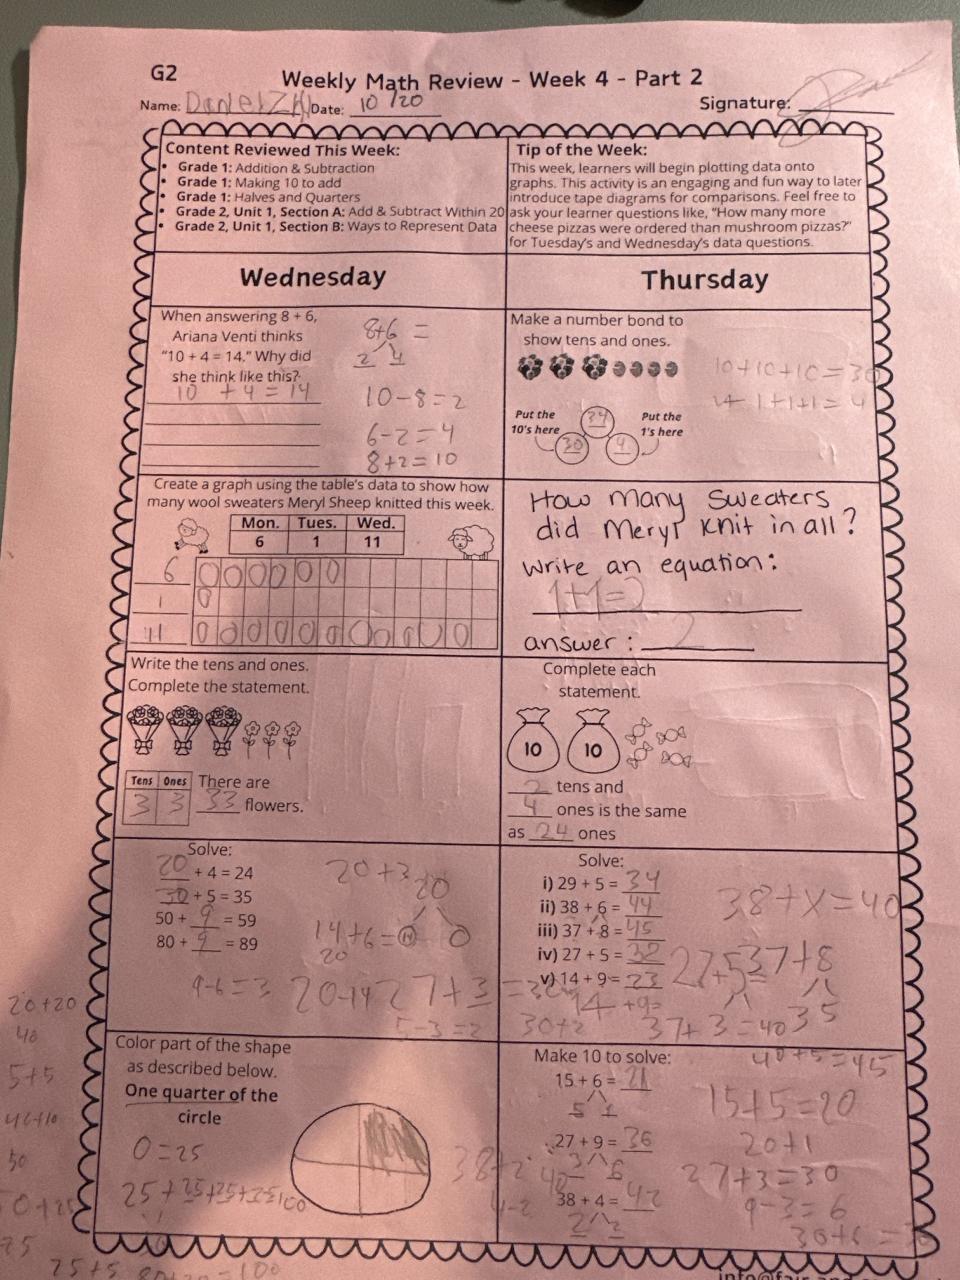 G2
Weekly Math Review - Week 4 - Part 2
Name: Daniel ZH Date: 10/20 Signature:
Content Reviewed This Week:
• Grade 1: Addition & Subtraction
• Grade 1: Making 10 to add
• Grade 1: Halves and Quarters
• Grade 2, Unit 1, Section A: Add & Subtract Within 20
• Grade 2, Unit 1, Section B: Ways to Represent Data
Tip of the Week:
This week, learners will begin plotting data onto
graphs. This activity is an engaging and fun way to later
introduce tape diagrams for comparisons. Feel free to
ask your learner questions like, "How many more
cheese pizzas were ordered than mushroom pizzas?"
for Tuesday's and Wednesday's data questions.
Wednesday
When answering 8 + 6,
Ariana Venti thinks
"10 + 4 = 14." Why did
she think like this?
10 + 4 = 14
8+6 =
2 4
10-8=2
6-2=4
8+2=10
Create a graph using the table's data to show how
many wool sweaters Meryl Sheep knitted this week.
Mon. Tues. Wed.
6 1 11
6
1
11
Write the tens and ones.
Complete the statement.
Tens Ones There are
3 3 33 flowers.
Solve:
20 + 4 = 24
30 + 5 = 35
50 + 9 = 59
80 + 9 = 89
20+3
20
14+6=
20
0
9-6=3
20-14
27+3=30
5-3=2
Color part of the shape
as described below.
One quarter of the
circle
0=25
25+25+25+25=100
Thursday
Make a number bond to
show tens and ones.
10+10+10=30
1+1+1+1=4
Put the
10's here
34
30 4
Put the
1's here
How many Sweaters
did Meryl knit in all?
Write an equation:
1+1=2
answer: 2
Complete each
statement.
10 10
2 tens and
4 ones is the same
as 24 ones
Solve:
i) 29 + 5 = 34
ii) 38 + 6 = 44
iii) 37 + 8 = 45
iv) 27 + 5 = 32
v) 14 + 9 = 23
38+x=40
27+5
37+8
3 5
14 +9=
30+2
37+3=40
40+5=45
Make 10 to solve:
15 + 6 = 21
5 1
27 + 9 = 36
3 6
38 + 4 = 42
2 2
15+5=20
20+1
27+3=30
9-3=6
30+6=36
38+2
40
4-2
20+20
40
5+5
40+10
50
25+5
80+20=100